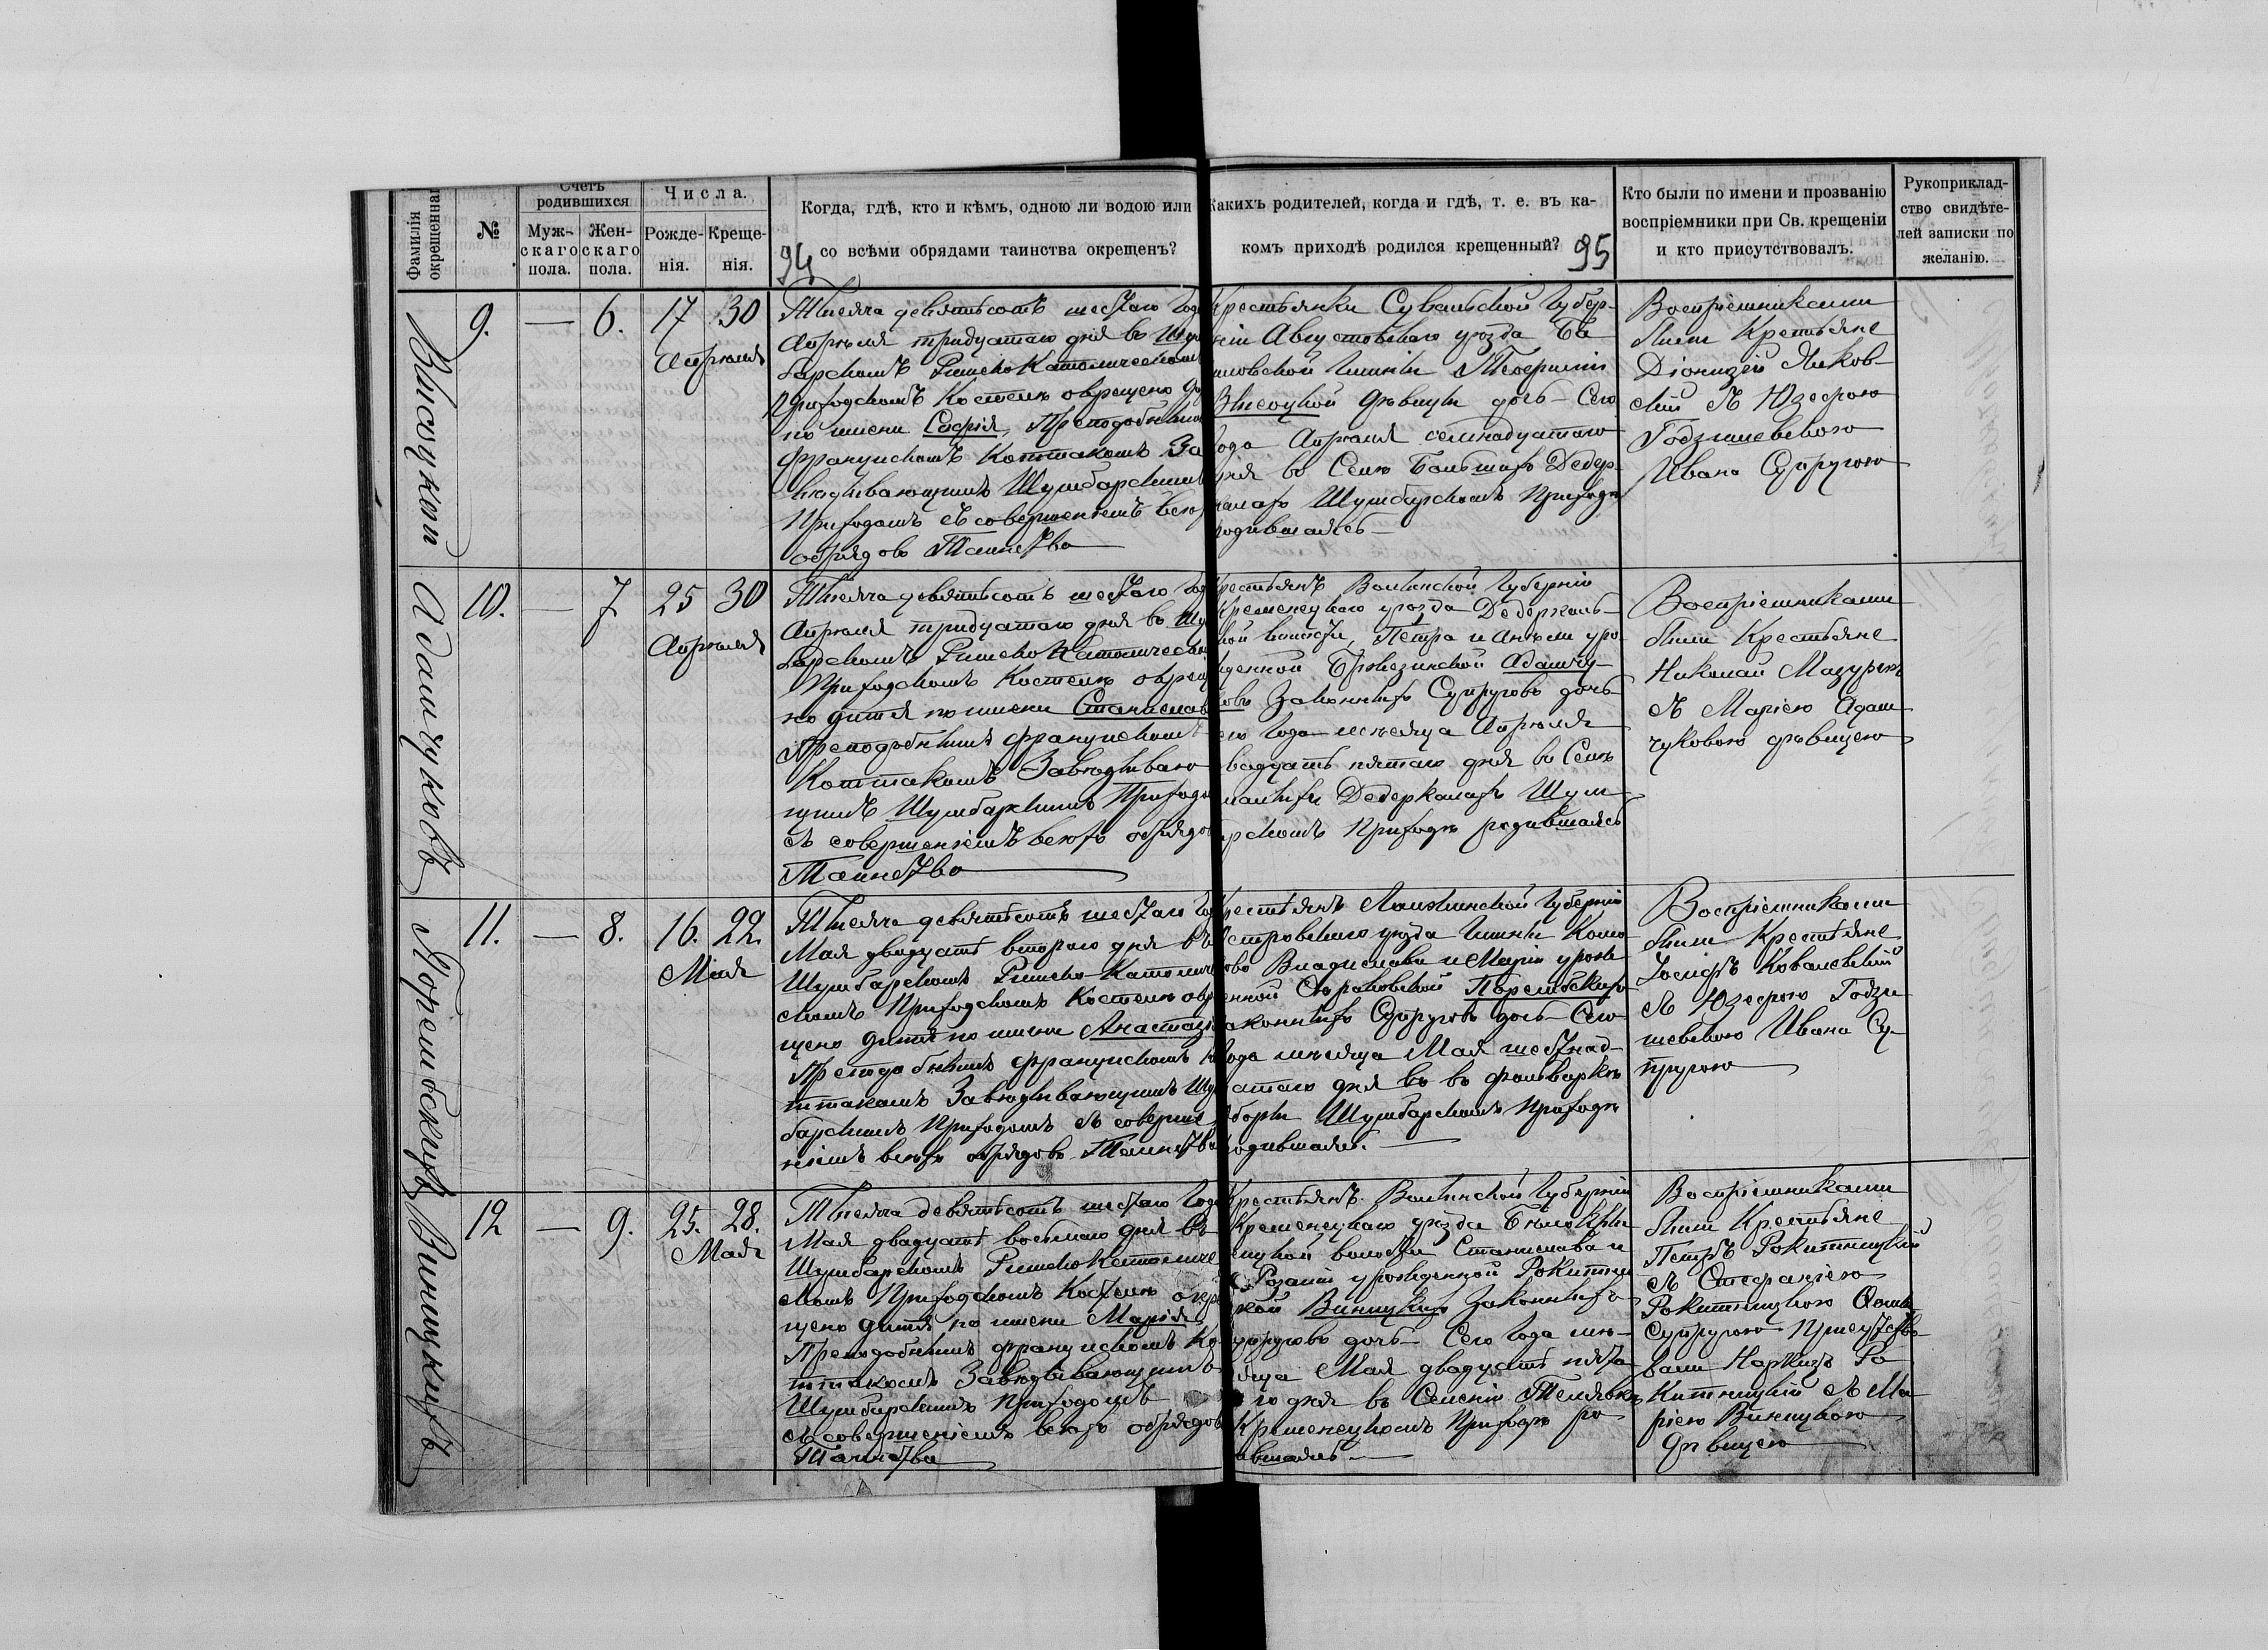 Фамилія окрещеннаг
№
Счетъ родившихся
Муж-
скаго
пола.
Жен-
скаго
пола.
Числа.
Рожде-
нія.
Креще-
нія.
Когда, гдѣ, кто и кѣмъ, одною ли водою или
со всѣми обрядами таинства окрещенъ?
94
Какихъ родителей, когда и гдѣ, т. е. въ ка-
комъ приходѣ родился крещенный?
95
Кто были по имени и прозванію
воспріемники при Св. крещеніи
и кто присутствовалъ.
Рукоприклад-
ство свидѣте-
лей записки по
желанію.
Высуцкой
9. — 6. 17 30
Апрѣля
Тысяча девятьсотъ шестаго год
Апрѣля тридцатаго дня въ Шум
барскомъ Римско Католическом
Приходскомъ Костелѣ окрещено ди
по имени Софія, Преподобнымъ
Францискомъ Коттакомъ За
вѣдывающимъ Шумбарскимъ
Приходомъ съ совершеніемъ всѣхъ
обрядовъ Таинства
Крестьянки Сувальской Губер-
ніи Августовскаго уѣзда
Гмины
дѣвицы дочь Сего
года Апрѣля семнадцатаго
дня въ Селѣ Большихъ Дедер-
калахъ Шумбарскомъ Приходѣ
родившаяся
Воспріемниками
были Крестьяне
Діонизій Яков-
скій съ Юзефою
Годзишевскою
Ивана Супругою
Адамчуковъ
10. — 7 25 30
Апрѣля
Тысяча девятьсотъ шестаго год
Апрѣля тридцатаго дня въ Шу
барскомъ Римско Католическом
Приходскомъ Костелѣ окрещ
но дитя по имени Станислав
Преподобнымъ Францискомъ
Коттакомъ Завѣдываю
щимъ Шумбарскимъ Приходо
съ совершеніемъ всѣхъ обрядов
Таинства
Крестьянъ Волынской Губерніи
Кременецкаго уѣзда Дедеркаль-
ской волости, Петра и Анели уро-
жденной Адамчу-
ковъ Законныхъ Супруговъ дочь
сего года мѣсяца Апрѣля
двадцать пятаго дня въ Селѣ
малыхъ Дедеркалахъ Шум
барскомъ Приходѣ родившаяся
Воспріемниками
были Крестьяне
Николай Мазурекъ
съ Маріею Адам
чуковою дѣвицею
Порембскихъ
11. — 8. 16. 22.
Мая
Тысяча девятьсотъ шестаго го
Мая двадцать втораго дня въ
Шумбарскомъ Римско-Католич
скомъ Приходскомъ Костелѣ окр
щено дитя по имени Анастаз
Преподобнымъ Францискомъ К
ттакомъ Завѣдывающимъ Шу
барскимъ Приходомъ съ соверше
ніемъ всѣхъ обрядовъ Таинства
Крестьянъ Ломжинской Губерніи
Островскаго уѣзда Гмины Комо
рово Владислава и Маріи урож
денной Порембскихъ
законныхъ Супруговъ дочь Сего
года мѣсяца Мая шестнад-
цатаго дня въ въ фольваркѣ
Шумбарскомъ Приходѣ
родившаяся.
Воспріемниками
были Крестьяне
Іосифъ Ковалевскій
съ Юзефою Годзи
шевскою Ивана Су-
пругою
Виницкихъ
12 — 9. 25. 28.
Мая
Тысяча девятьсотъ шестаго год
Мая двадцать восьмаго дня въ
Шумбарскомъ Римско Католиче
скомъ Приходскомъ Костелѣ окре
щено дитя по имени Марія,
Преподобнымъ Францискомъ Ко
ттакомъ Завѣдывающимъ
Шумбарскимъ Приходомъ
съ совершеніемъ всѣхъ обрядов
Таинства
Крестьянъ Волынской Губерніи
Кременецкаго уѣзда Бѣлокри
ницкой волости Станислава и
Розаліи урожденной Рокитни
цкой Виницкихъ Законныхъ
Супруговъ дочь Сего года мѣ-
сяца Мая двадцать пята
го дня въ Селеніи
Кременецкомъ Приходѣ ро
дившаяся.
Воспріемниками
были Крестьяне
Петръ Рокитницкій
съ Стефаніею
Рокитницкою
Супругою Присутство-
вали Наркизъ Ро
китницкій съ Ма
ріею Виницкою
дѣвицею